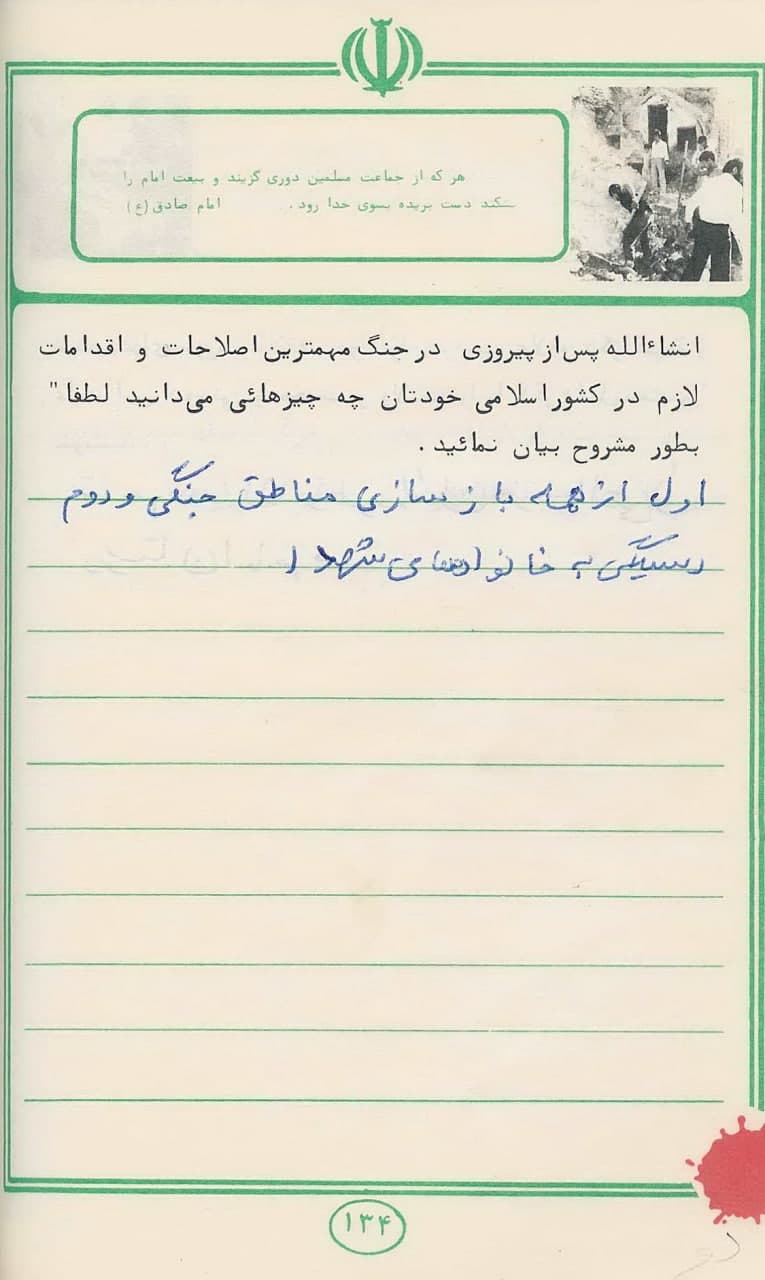 هر که از جماعت مسلمین دوری گزیند و بیعت امام را
بشکند دست بریده بسوی خدا رود . امام صادق (ع)
انشاءالله پس از پیروزی در جنگ مهمترین اصلاحات و اقدامات
لازم در کشور اسلامی خودتان چه چیزهائی می‌دانید لطفا"
بطور مشروح بیان نمائید .
اول از همه باز سازی مناطق جنگی و دوم
رسیدگی به خانوادهای شهدا
۱۳۴